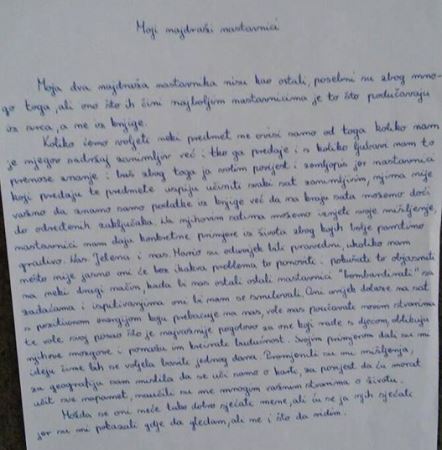 Moji najdraži nastavnici
Moja dva najdraža nastavnika nisu kao ostali, posebni su zbog mno-
go toga, ali ono što ih čini najboljim nastavnicima je to što podučavaju
iz srca, a ne iz knjige.
Koliko ćemo voljeti neki predmet ne ovisi samo od toga koliko nam
je njegov sadržaj zanimljiv već i tko ga predaje i s koliko ljubavi nam to
prenose znanje i baš zbog toga ja volim povijest i zemljopis jer nastavnici
koji predaju te predmete uspiju učiniti svaki sat zanimljivim, njima nije
važno da znamo samo podatke iz knjige već da na kraju sata možemo doći
do određenih zaključaka. Na njihovim satima možemo iznijeti svoje mišljenje,
nastavnici nam daju konkretne primjere iz života zbog kojih bolje pamtimo
gradivo. Nas. Jelena i nas. Mario su oduvijek bili pravedni, ukoliko nam
nešto nije jasno oni će bez ikakva problema to ponoviti i pokušati to objasniti
na neki drugi način, kada bi nas ostali ostali nastavnici "bombardirali" sa
zadaćama i ispitivanjima oni bi nam se smilovali. Oni uvijek dolaze na sat
s pozitivnom energijom koju prebacuje na nas, vole nas poučavati novim stvarima
te vole svoj posao što je najvažnije pogotovo za one koji rade s djecom, oblikuju
njihove mozgove i pomažu im kreirati budućnost. Svojim primjerom dali su mi
ideju čime bih se voljela baviti jednog dana. Promijenili su mi mišljenja,
za geografiju sam mislila da se uči samo o karti, za povijest da ću morat
učit sve napamet, naučili su me mnogim važnim stvarima o životu.
Možda se oni neće tako dobro sjećati mene, ali ću se ja njih sjećati
jer su mi pokazali gdje da gledam, ali ne i što da vidim.